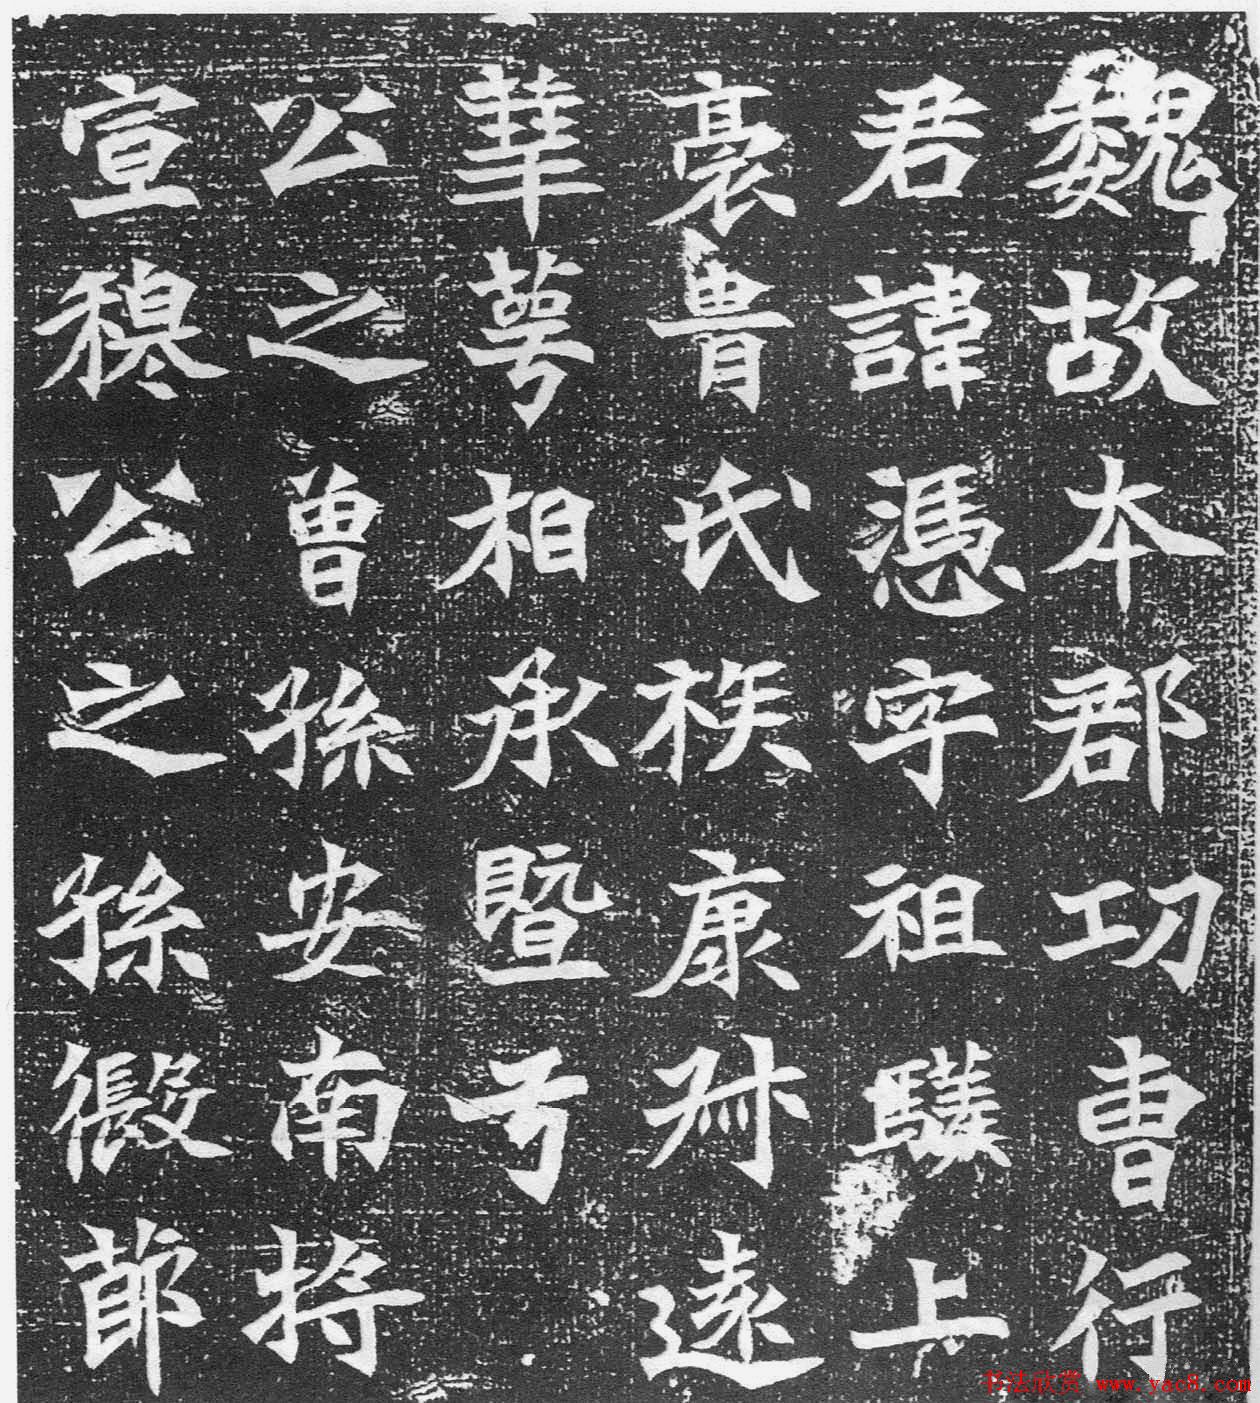 魏故本郡功曹行
君諱憑字祖驥上
裔胄氏族康叔遠
華萼相承暨号
公之曾孫安南將
宣穆公之孫假節
书法欣赏 www.yac8.com